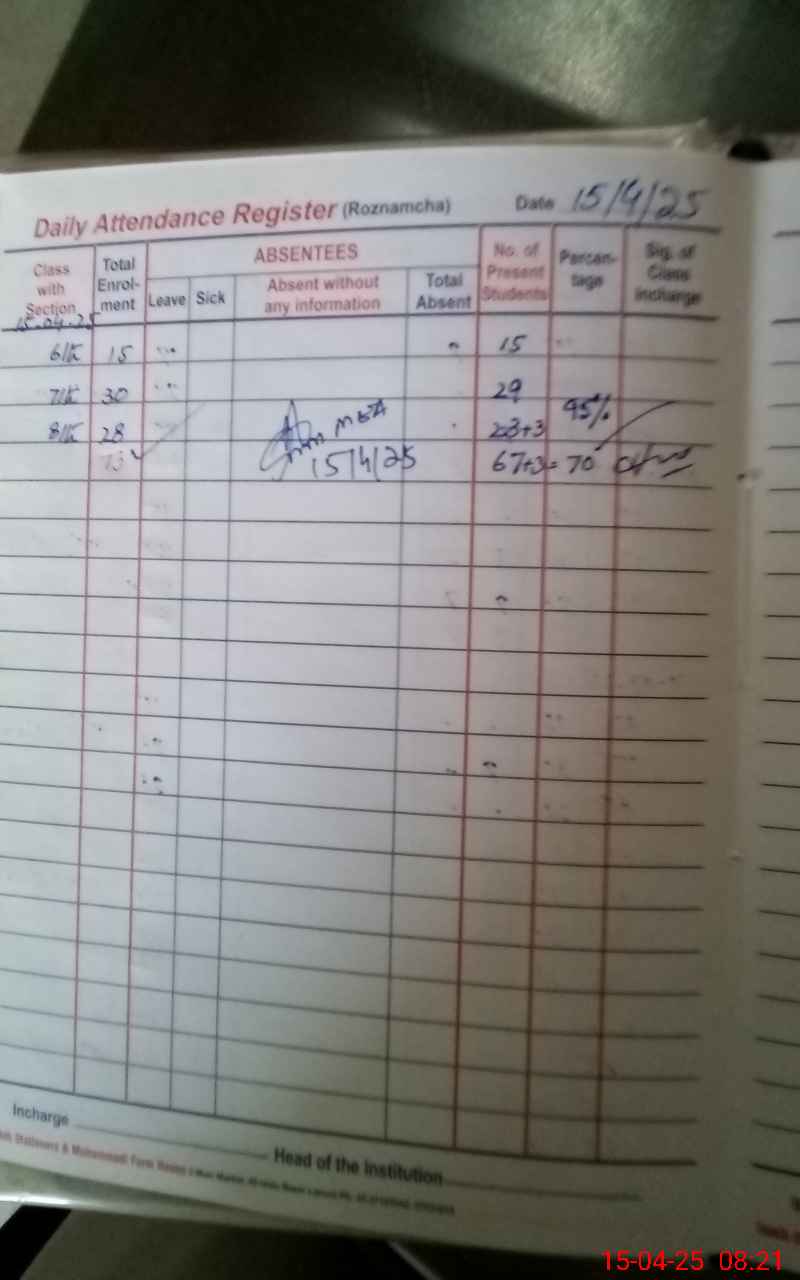 Daily Attendance Register (Roznamcha) Date 15/4/25
Class with Section
Total Enrol-ment
ABSENTEES
Leave
Sick
Absent without any information
Total Absent
No. of Present Students
Percen-tage
Sig. of Class Incharge
15.04.25
15 15
30 29
28 23+3 95%
73 15/4/25 67+3=70
Incharge
Head of the Institution
15-04-25 08.21